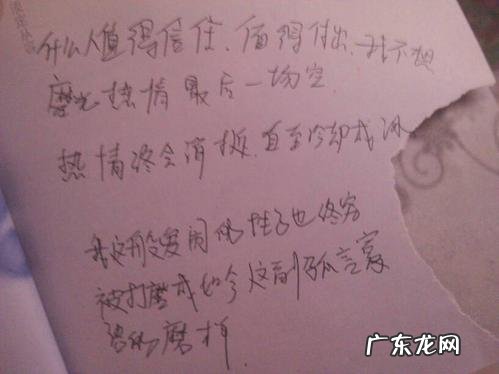 什么人值得信任.值得付出.我不想
磨光热情最后一场空.
热情终会消极.直至冷却成冰
我这般爱闹的性子也终究
被打磨成如今这副孤言寡
语的磨样.
广东龙网